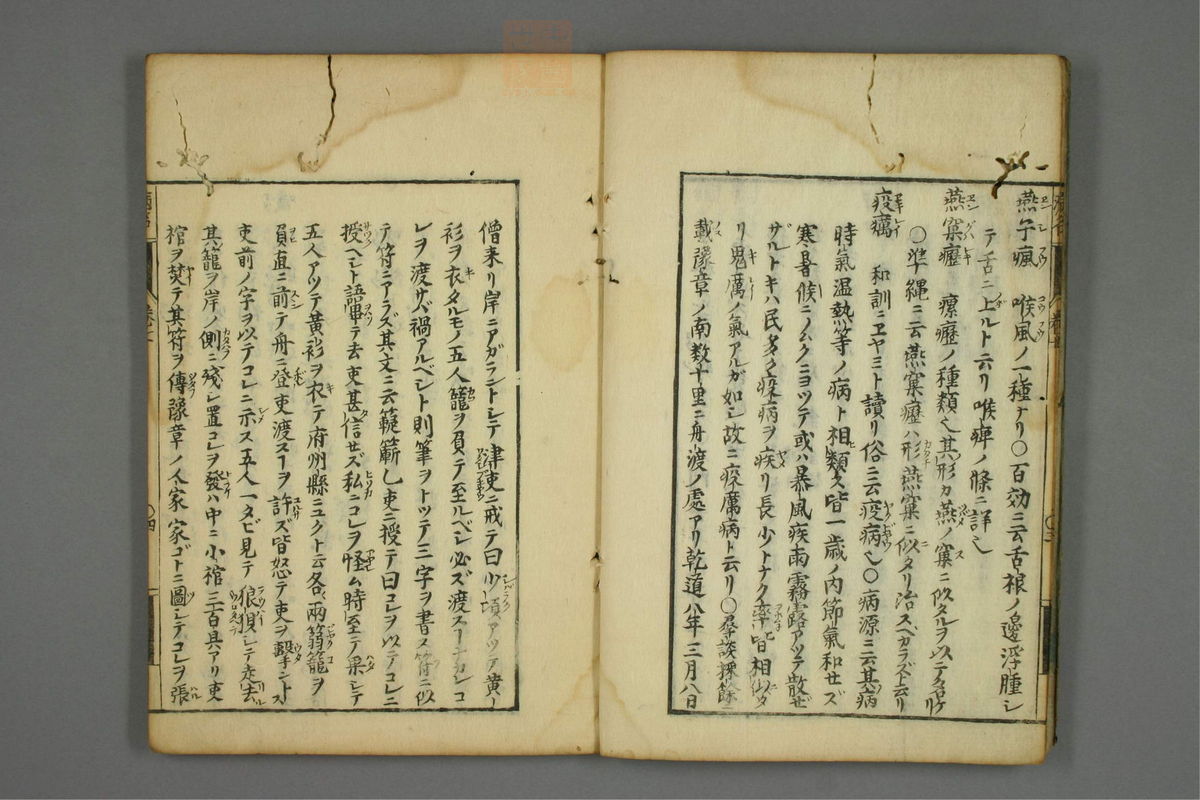 燕子瘋 喉風ノ一種ナリ〇百効ニ云舌根ノ邊浮腫シ
テ舌ニ上ルト云リ喉痺ノ條ニ詳也
燕窠癧 瘰癧ノ種類也其形カ燕ノ窠ニ似タルヲ以テ名ヅケリ
〇準縄ニ云燕窠癧ハ形燕窠ニ似タリ治スベカラズト云リ
疫癘 和訓ニヱヤミト讀リ俗ニ云疫病也〇病源ニ云其病
時氣温熱等ノ病ト相類ス皆一歳ノ内節氣和せズ
寒暑候ニソムクニヨツテ或ハ暴風疾雨霧露アツテ散ぜ
ザルトキハ民多ク疫病ヲ疾リ長少トナク率皆相似タ
リ鬼厲ノ氣アルガ如シ故ニ疫厲病ト云リ〇
載豫章ノ南数十里ニ舟渡ノ處アリ乾道八年三月八日
僧来リ岸ニアガラントシテ津吏ニ戒テ曰少頃アツテ黄ノ
衫ヲ衣タルモノ五人籠ヲ負テ至ルベシ必ズ渡スナカレコ
レヲ渡サバ禍アルベシト則筆ヲトツテ三字ヲ書ス符ニ似
テ符ニアラズ其文ニ云 吏ニ授テ曰コレヲ以テコレニ
授ベシト語畢テ去吏甚信せズ私ニコレヲ怪ム時至テ果シテ
五人アツテ黄衫ヲ衣テ府州縣ニユクト云各両箬籠ヲ
負直ニ前テ舟ニ登吏渡スヿヲ許ズ皆怒テ吏ヲ撃ントス
吏前ノ字ヲ以テコレニ示ス五人一タビ見テ狼狽シテ走去
其籠ヲ岸ノ側ニ残シ置コレヲ發ハ中ニ小棺三百具アリ吏
棺ヲ焚テ其符ヲ傳豫章ノ人家家ゴトニ圖シテコレヲ張